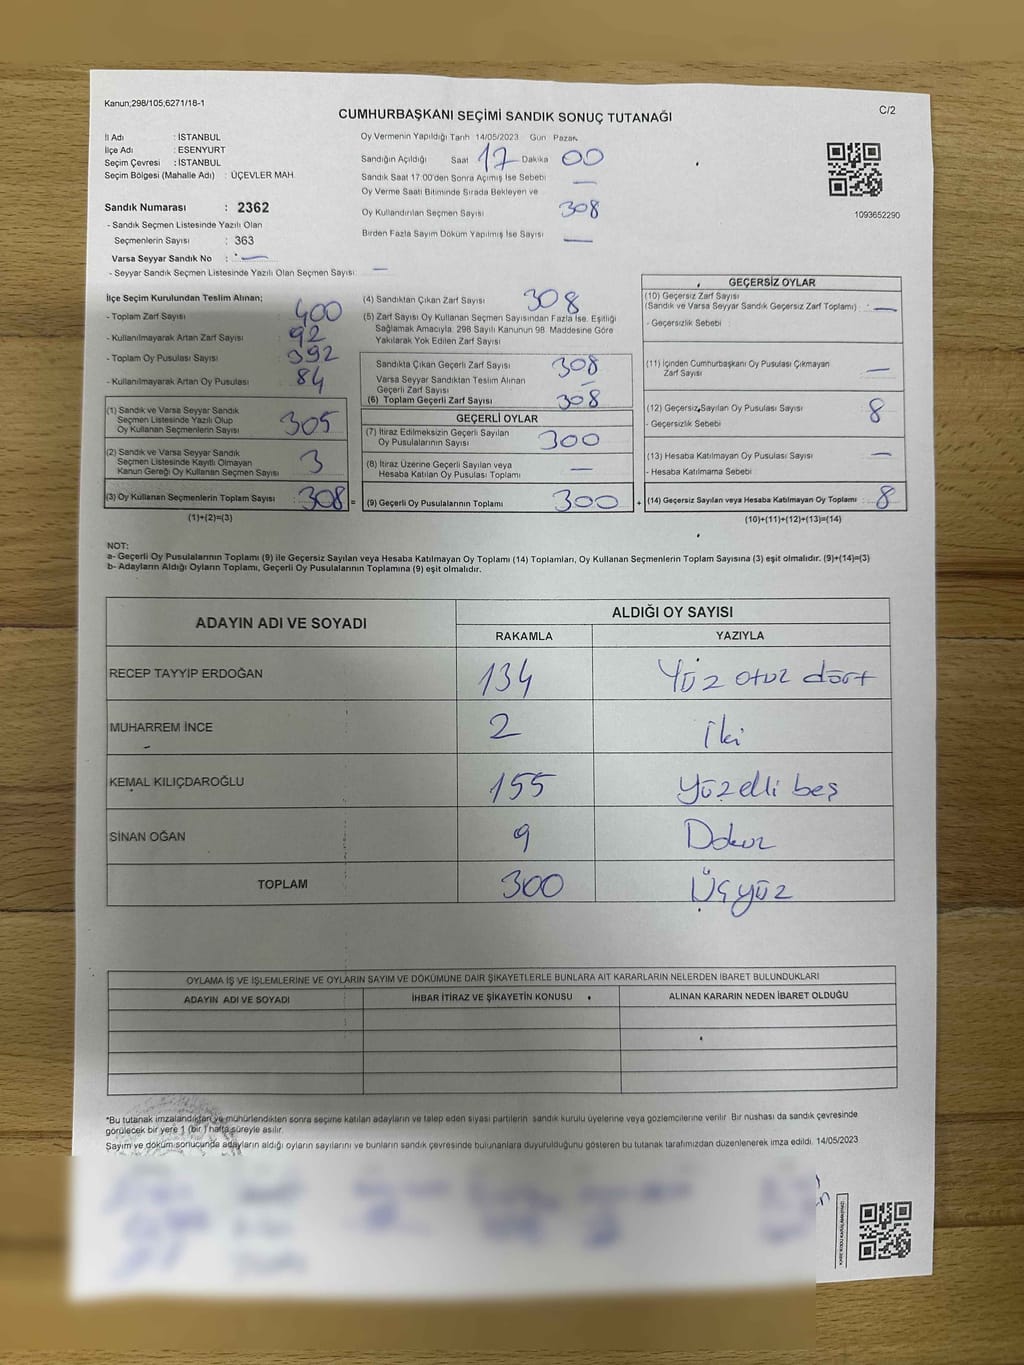 Kanun;298/105;6271/18-1
CUMHURBAŞKANI SEÇİMİ SANDIK SONUÇ TUTANAĞI
C/2
İl Adı : İSTANBUL
İlçe Adı : ESENYURT
Seçim Çevresi : İSTANBUL
Seçim Bölgesi (Mahalle Adı) : ÜÇEVLER MAH.
Sandık Numarası : 2362
- Sandık Seçmen Listesinde Yazılı Olan
Seçmenlerin Sayısı : 363
Varsa Seyyar Sandık No : —
- Seyyar Sandık Seçmen Listesinde Yazılı Olan Seçmen Sayısı: —
Oy Vermenin Yapıldığı Tarih 14/05/2023 Gün Pazar
Sandığın Açıldığı Saat 17 Dakika 00
Sandık Saat 17:00'den Sonra Açımış İse Sebebi —
Oy Verme Saati Bitiminde Sırada Bekleyen ve
Oy Kullandırılan Seçmen Sayısı 308
Birden Fazla Sayım Döküm Yapılmış İse Sayısı —
1093652290
İlçe Seçim Kurulundan Teslim Alınan;
- Toplam Zarf Sayısı : 400
- Kullanılmayarak Artan Zarf Sayısı : 92
- Toplam Oy Pusulası Sayısı : 392
- Kullanılmayarak Artan Oy Pusulası : 84
(1) Sandık ve Varsa Seyyar Sandık
Seçmen Listesinde Yazılı Olup
Oy Kullanan Seçmenlerin Sayısı : 305
(2) Sandık ve Varsa Seyyar Sandık
Seçmen Listesinde Kayıtlı Olmayan
Kanun Gereği Oy Kullanan Seçmen Sayısı : 3
(3) Oy Kullanan Seçmenlerin Toplam Sayısı : 308 =
(1)+(2)=(3)
(4) Sandıktan Çıkan Zarf Sayısı 308
(5) Zarf Sayısı Oy Kullanan Seçmen Sayısından Fazla İse, Eşitliği
Sağlamak Amacıyla, 298 Sayılı Kanunun 98. Maddesine Göre
Yakılarak Yok Edilen Zarf Sayısı
Sandıkta Çıkan Geçerli Zarf Sayısı 308
Varsa Seyyar Sandıktan Teslim Alınan
Geçerli Zarf Sayısı —
(6) Toplam Geçerli Zarf Sayısı 308
GEÇERLİ OYLAR
(7) İtiraz Edilmeksizin Geçerli Sayılan
Oy Pusulalarının Sayısı 300
(8) İtiraz Üzerine Geçerli Sayılan veya
Hesaba Katılan Oy Pusulası Toplamı —
(9) Geçerli Oy Pusulalarının Toplamı 300 +
GEÇERSİZ OYLAR
(10) Geçersiz Zarf Sayısı
(Sandık ve Varsa Seyyar Sandık Geçersiz Zarf Toplamı) : —
- Geçersizlik Sebebi
(11) İçinden Cumhurbaşkanı Oy Pusulası Çıkmayan
Zarf Sayısı —
(12) Geçersiz Sayılan Oy Pusulası Sayısı : 8
- Geçersizlik Sebebi
(13) Hesaba Katılmayan Oy Pusulası Sayısı : —
- Hesaba Katılmama Sebebi
(14) Geçersiz Sayılan veya Hesaba Katılmayan Oy Toplamı : 8
(10)+(11)+(12)+(13)=(14)
NOT:
a- Geçerli Oy Pusulalarının Toplamı (9) ile Geçersiz Sayılan veya Hesaba Katılmayan Oy Toplamı (14) Toplamları, Oy Kullanan Seçmenlerin Toplam Sayısına (3) eşit olmalıdır. (9)+(14)=(3)
b- Adayların Aldığı Oyların Toplamı, Geçerli Oy Pusulalarının Toplamına (9) eşit olmalıdır.
ADAYIN ADI VE SOYADI
ALDIĞI OY SAYISI
RAKAMLA YAZIYLA
RECEP TAYYİP ERDOĞAN 134 Yüz otuz dört
MUHARREM İNCE 2 İki
KEMAL KILIÇDAROĞLU 155 yüzelli beş
SİNAN OĞAN 9 Dokuz
TOPLAM 300 Üçyüz
OYLAMA İŞ VE İŞLEMLERİNE VE OYLARIN SAYIM VE DÖKÜMÜNE DAİR ŞİKAYETLERLE BUNLARA AİT KARARLARIN NELERDEN İBARET BULUNDUKLARI
ADAYIN ADI VE SOYADI İHBAR İTİRAZ VE ŞİKAYETİN KONUSU ALINAN KARARIN NEDEN İBARET OLDUĞU
*Bu tutanak imzalandıktan ve mühürlendikten sonra seçime katılan adayların ve talep eden siyasi partilerin sandık kurulu üyelerine veya gözlemcilerine verilir. Bir nüshası da sandık çevresinde
görülecek bir yere 1 (bir ) hafta süreyle asılır.
Sayım ve döküm sonucunda adayların aldığı oyların sayılarını ve bunların sandık çevresinde bulunanlara duyurulduğunu gösteren bu tutanak tarafımızdan düzenlenerek imza edildi. 14/05/2023